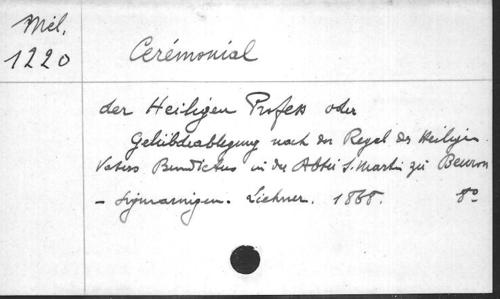 Mel.
1220
Cerémonial
der Heiligen Profess oder
Gelübdeablegung nach der Regel des Heiligen
Vaters Benedictus in der Abtei S. Martin zu Beuron
– Sigmaringen. Liehner. 1868. 8°